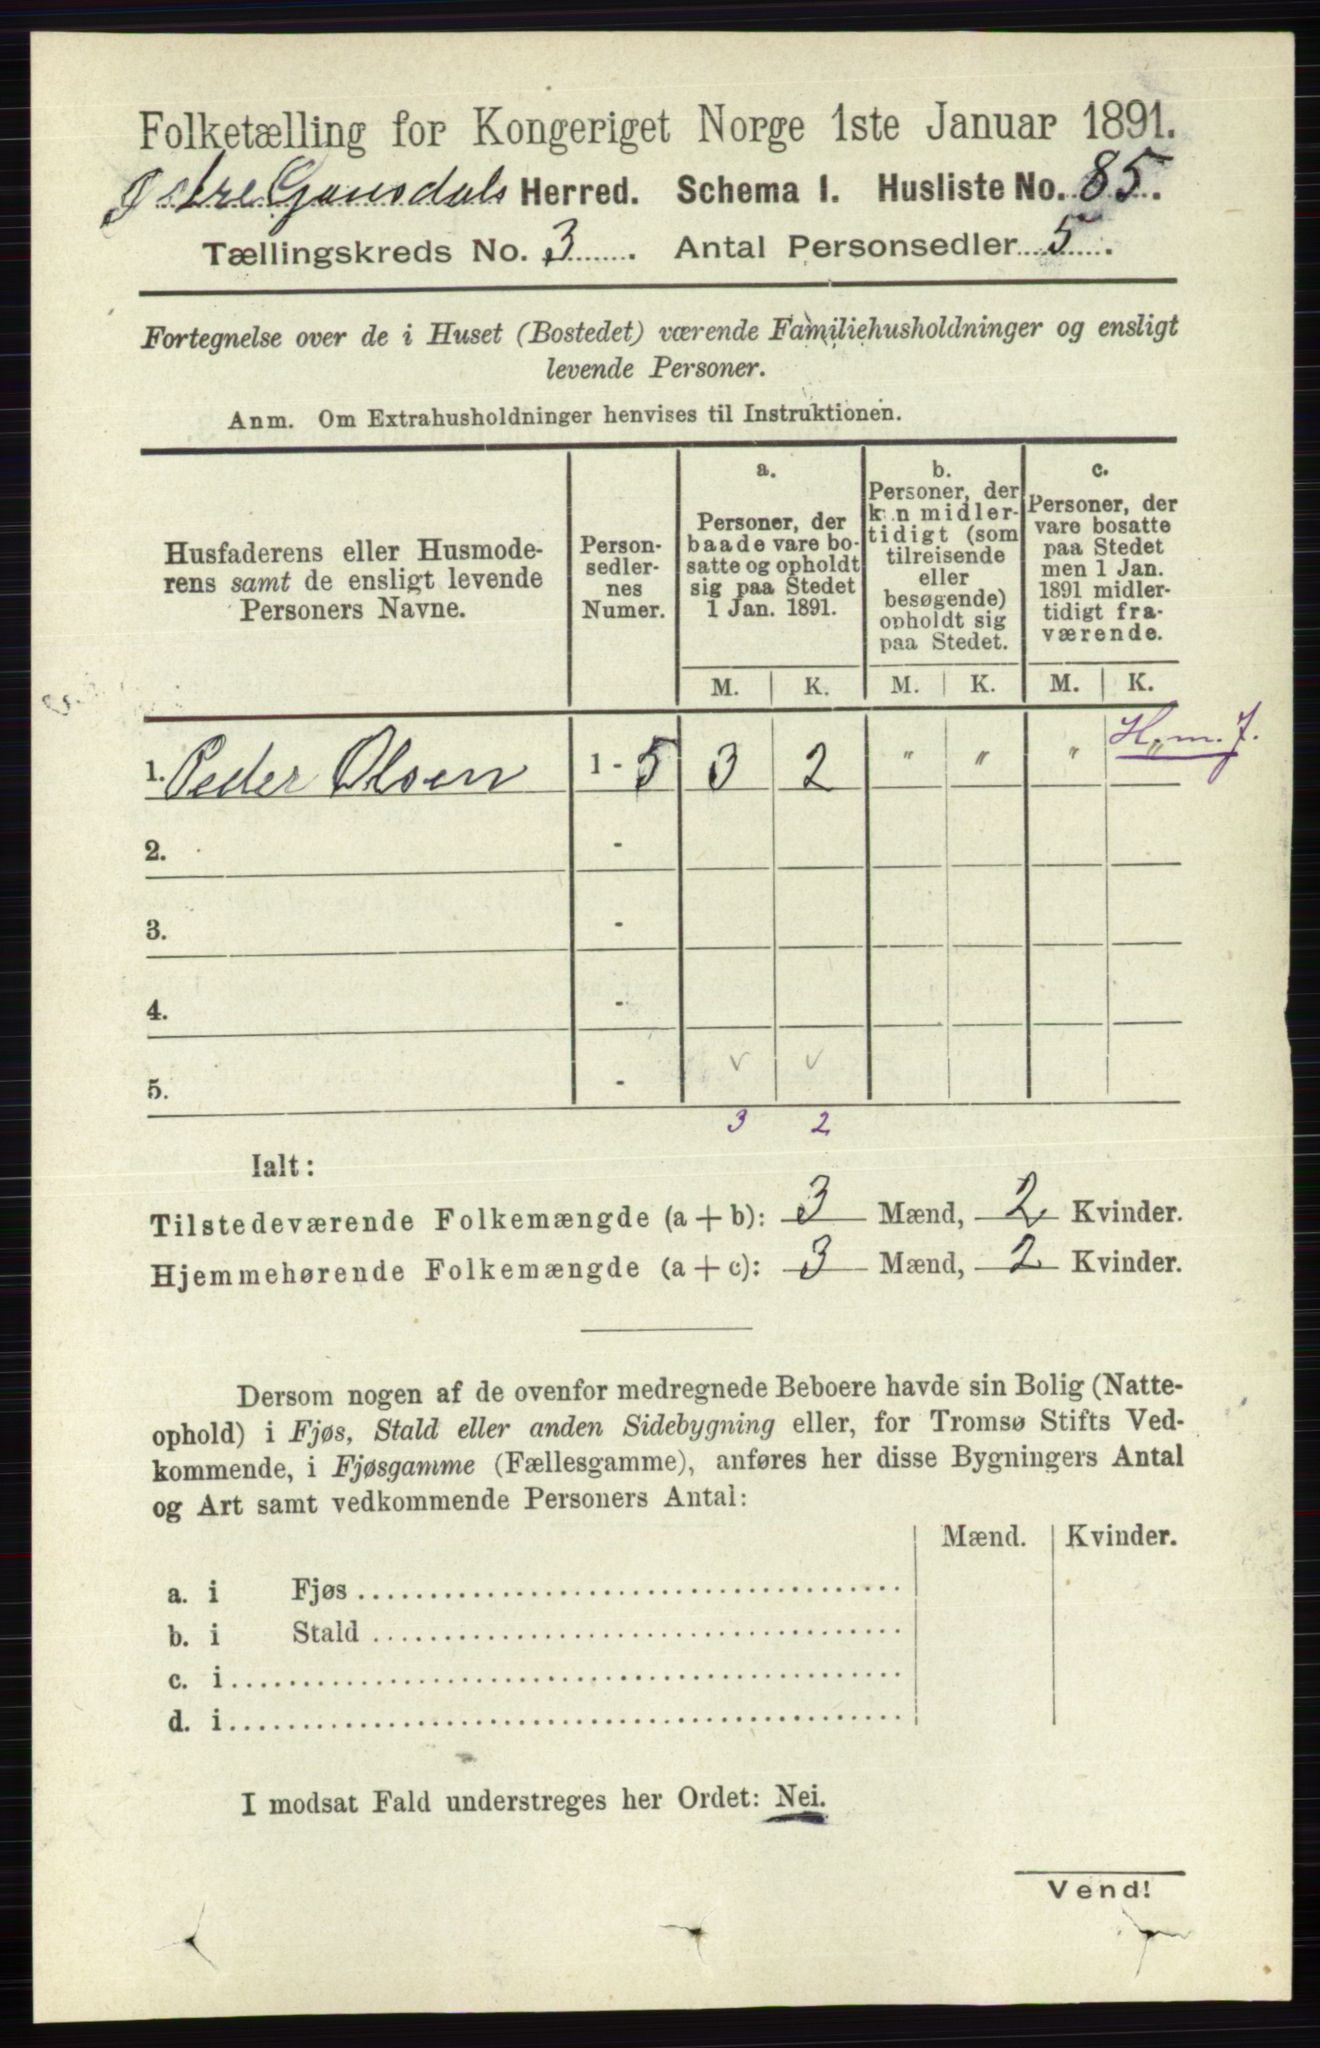 Folketælling for Kongeriget Norge 1ste Januar 1891.
Østre Gausdals Herred. Schema 1. Husliste No. 85.
Tællingskreds No. 3. Antal Personsedler 5.
Fortegnelse over de i Huset (Bostedet) værende Familiehusholdninger og ensligt
levende Personer.
Anm. Om Extrahusholdninger henvises til Instruktionen.
Husfaderens eller Husmode-
rens samt de ensligt levende
Personers Navne.
Person-
sedler-
nes
Numer.
a.
Personer, der
baade vare bo-
satte og opholdt
sig paa Stedet
1 Jan. 1891.
b.
Personer, der
kun midler-
tidigt (som
tilreisende
eller
besøgende)
opholdt sig
paa Stedet.
c.
Personer, der
vare bosatte
paa Stedet
men 1 Jan.
1891 midler-
tidigt fra-
værende.
M. K. M. K. M. K.
H. m. f.
1. Peder Olsen 1 - 5 3 2 " " " "
2. -
3. -
4. -
5. -
3 2
Ialt:
Tilstedeværende Folkemængde (a + b): 3 Mænd, 2 Kvinder.
Hjemmehørende Folkemængde (a + c): 3 Mænd, 2 Kvinder.
Dersom nogen af de ovenfor medregnede Beboere havde sin Bolig (Natte-
ophold) i Fjøs, Stald eller anden Sidebygning eller, for Tromsø Stifts Ved-
kommende, i Fjøsgamme (Fællesgamme), anføres her disse Bygningers Antal
og Art samt vedkommende Personers Antal:
Mænd. Kvinder.
a. i Fjøs
b. i Stald
c. i
d. i
I modsat Fald understreges her Ordet: Nei.
Vend!